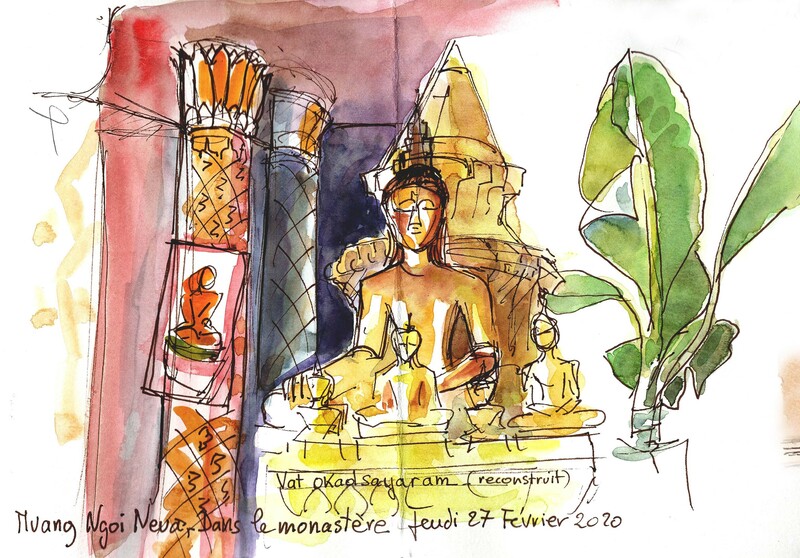 Vat okadsayaram (reconstruit)
Muang Ngoi Neua, Dans le monastère Jeudi 27 Février 2020